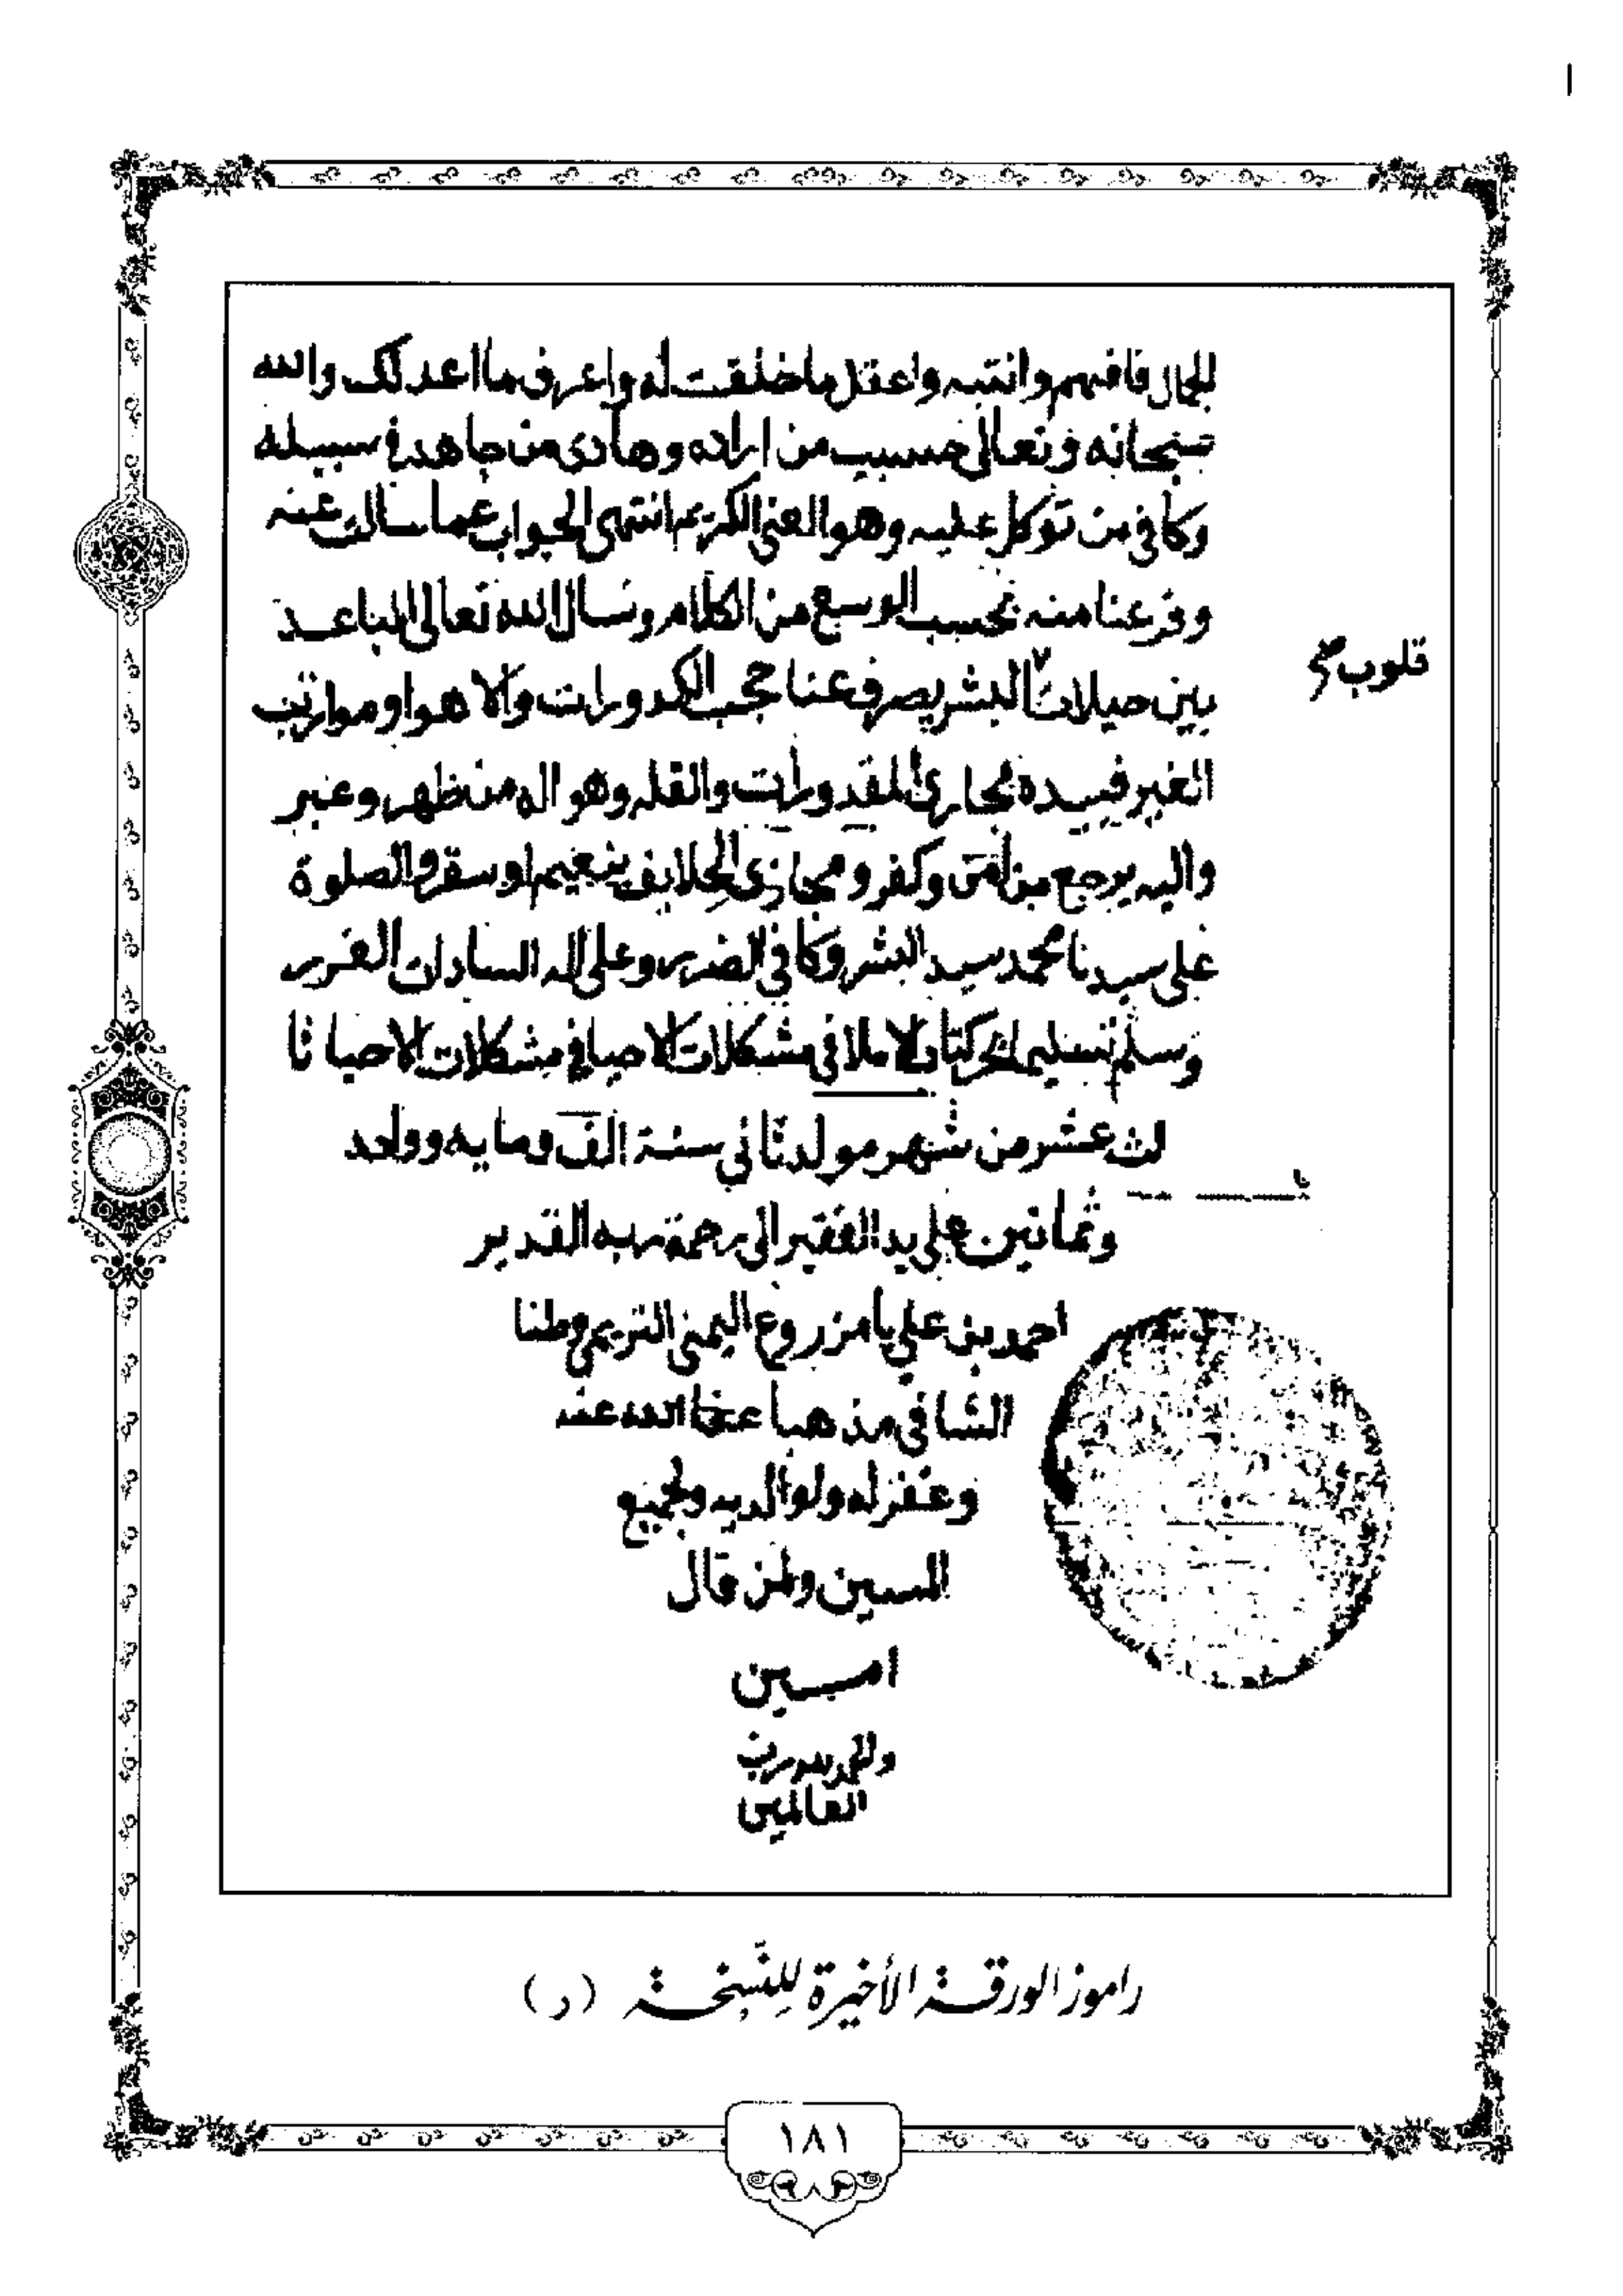 للجمال فافهم وانتبه واعقل ما خلقت له واعرف ما اعد لك والله
سبحانه وتعالى حسيب من اراده وهادى من جاهد في سبيله
وكافي من توكل عليه وهو الغني الكريم انتهى الجواب عما سالت عنه
وفرغنا منه بحسب الوسع من الكلام ونسال الله تعالى المباعد
بين حيلات البشر يصرف عنا حجب الكدورات والاهوا وموارث
قلوب صح
الغير فبيده مجارى المقدورات وهو اله من ظهر وغبر
واليه يرجع من امن وكفر ومجازى الخلايق بنعيم او سقر والصلوة
على سيدنا محمد سيد البشر وكافي الضرر وعلى اله السادات الغرر
وسلم تسليما كتاب الاملا في مشكلات الاحيا في مشكلات الاحيا ثا
لث عشر من شهر مولد ثاني سنة الف ومايه وواحد
وثمانين على يد الفقير الى رحمة ربه القدير
احمد بن علي بامزروع اليمني التريمي وطنا
الشافي مذهبا عفا الله عنه
وغفر له ولوالديه ولجميع
المسين ولمن قال
امين
والحمد لله رب
العالمين
راموز الورقة الأخيرة للنسخة (ر)
١٨١